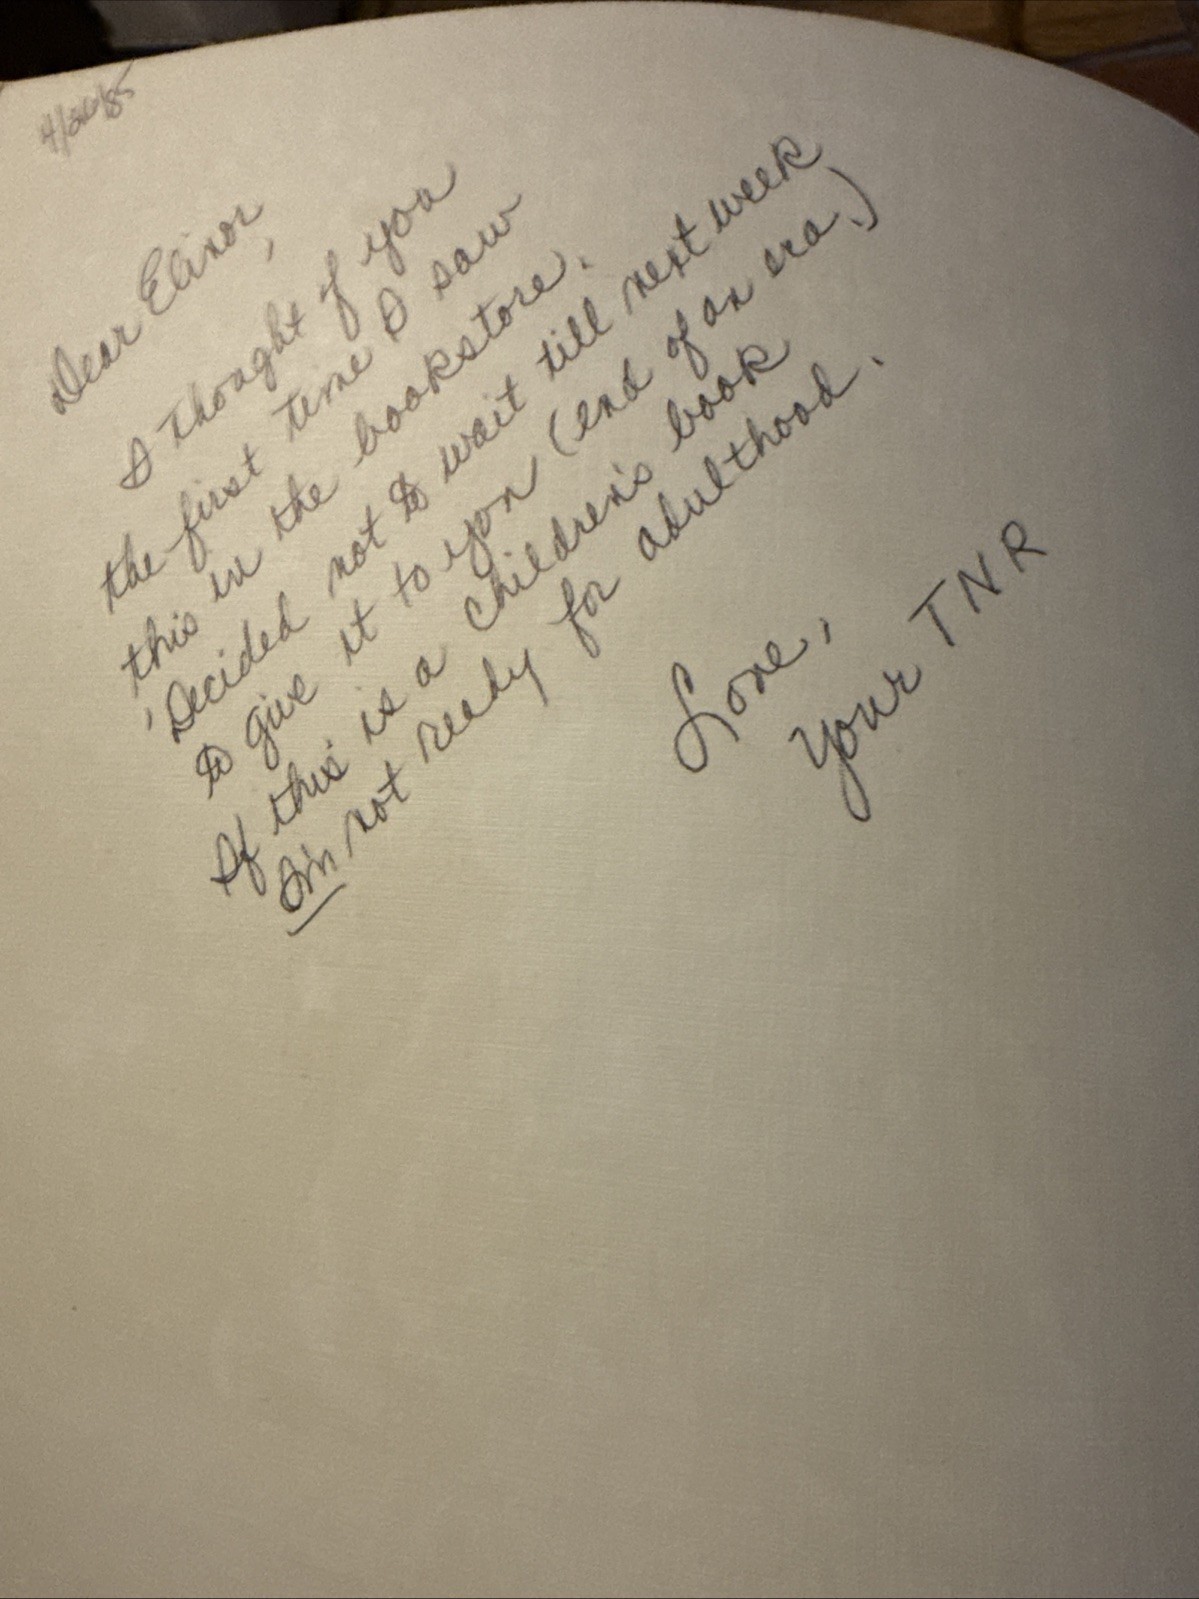 4/26/85
Dear Elinor,
I thought of you
the first time I saw
this in the bookstore.
Decided not to wait till next week
to give it to you (end of an era.)
If this is a children's book
I'm not ready for adulthood.
Love,
Your TNR